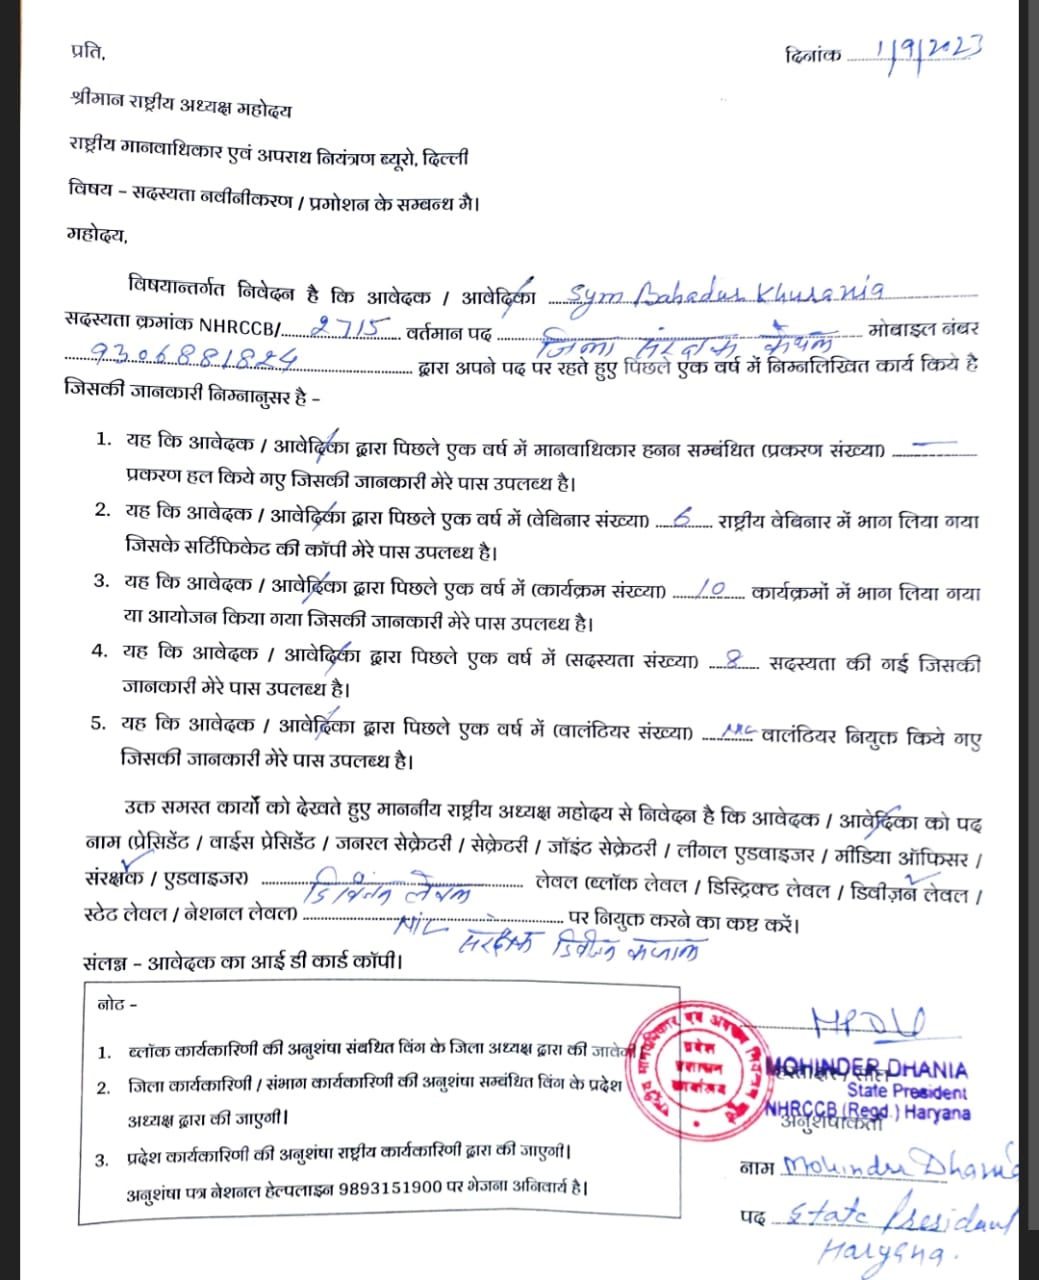 प्रति,
दिनांक 1/9/2023
श्रीमान राष्ट्रीय अध्यक्ष महोदय
राष्ट्रीय मानवाधिकार एवं अपराध नियंत्रण ब्यूरो, दिल्ली
विषय – सदस्यता नवीनीकरण / प्रमोशन के सम्बन्ध मै।
महोदय,
विषयान्तर्गत निवेदन है कि आवेदक / आवेदिका Sym Bahadur Khurania
सदस्यता क्रमांक NHRCCB/ 2715 वर्तमान पद जिला संरक्षक कैथल मोबाइल नंबर
9306881884 द्वारा अपने पद पर रहते हुए पिछले एक वर्ष में निम्नलिखित कार्य किये है
जिसकी जानकारी निम्नानुसर है –
1. यह कि आवेदक / आवेदिका द्वारा पिछले एक वर्ष में मानवाधिकार हनन सम्बंधित (प्रकरण संख्या) —
प्रकरण हल किये गए जिसकी जानकारी मेरे पास उपलब्ध है।
2. यह कि आवेदक / आवेदिका द्वारा पिछले एक वर्ष में (वेबिनार संख्या) 6 राष्ट्रीय वेबिनार में भाग लिया गया
जिसके सर्टिफिकेट की कॉपी मेरे पास उपलब्ध है।
3. यह कि आवेदक / आवेदिका द्वारा पिछले एक वर्ष में (कार्यक्रम संख्या) 10 कार्यक्रमों में भाग लिया गया
या आयोजन किया गया जिसकी जानकारी मेरे पास उपलब्ध है।
4. यह कि आवेदक / आवेदिका द्वारा पिछले एक वर्ष में (सदस्यता संख्या) 8 सदस्यता की गई जिसकी
जानकारी मेरे पास उपलब्ध है।
5. यह कि आवेदक / आवेदिका द्वारा पिछले एक वर्ष में (वालंटियर संख्या) वालंटियर नियुक्त किये गए
जिसकी जानकारी मेरे पास उपलब्ध है।
उक्त समस्त कार्यों को देखते हुए माननीय राष्ट्रीय अध्यक्ष महोदय से निवेदन है कि आवेदक / आवेदिका को पद
नाम (प्रेसिडेंट / वाईस प्रेसिडेंट / जनरल सेक्रेटरी / सेक्रेटरी / जॉइंट सेक्रेटरी / लीगल एडवाइजर / मीडिया ऑफिसर /
संरक्षक / एडवाइजर) डिविजन लेवल लेवल (ब्लॉक लेवल / डिस्ट्रिक्ट लेवल / डिवीज़न लेवल /
स्टेट लेवल / नेशनल लेवल) पर नियुक्त करने का कष्ट करें।
NIL संरक्षक डिवीजन करनाल
संलग्न – आवेदक का आई डी कार्ड कॉपी।
नोट –
1. ब्लॉक कार्यकारिणी की अनुशंषा संबधित विंग के जिला अध्यक्ष द्वारा की जावेगी
2. जिला कार्यकारिणी / संभाग कार्यकारिणी की अनुशंषा सम्बंधित विंग के प्रदेश
अध्यक्ष द्वारा की जाएगी।
3. प्रदेश कार्यकारिणी की अनुशंषा राष्ट्रीय कार्यकारिणी द्वारा की जाएगी।
अनुशंषा पत्र नेशनल हेल्पलाइन 9893151900 पर भेजना अनिवार्य है।
प्रदेश
प्रशासन
कार्यालय
MOHINDER DHANIA
State President
NHRCCB (Regd.) Haryana
अनुशंषाकर्ता
नाम Mohinder Dhania
पद State President
Haryana.